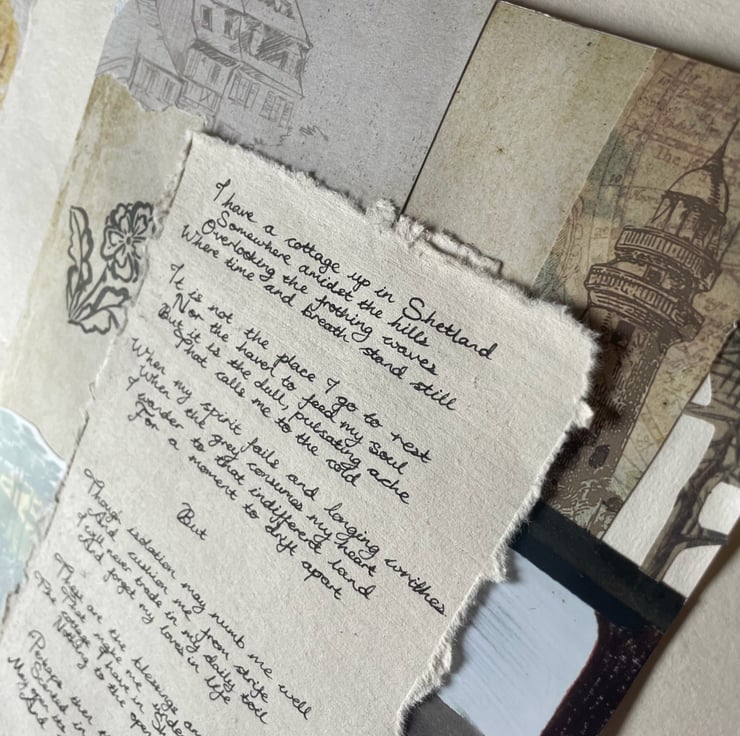 I have a cottage up in Shetland
Somewhere amidst the hills
Overlooking the frothing waves
Where time and breath stand still
It is not the place I go to rest
Nor the haven to feed my soul
But it is the dull, pulsating ache
That calls me to the cold
When my spirit fails and longing writhes
When the grey consumes my heart
I wander to that indifferent land
For a moment to drift apart
But
Though isolation may numb me well
And cushion me from strife
I will never trade in my daily toil
And forget my loves in life
They are the blessings
That make me
The cottage I have in
Nothing to the open
Perhaps then
in
May open its
And